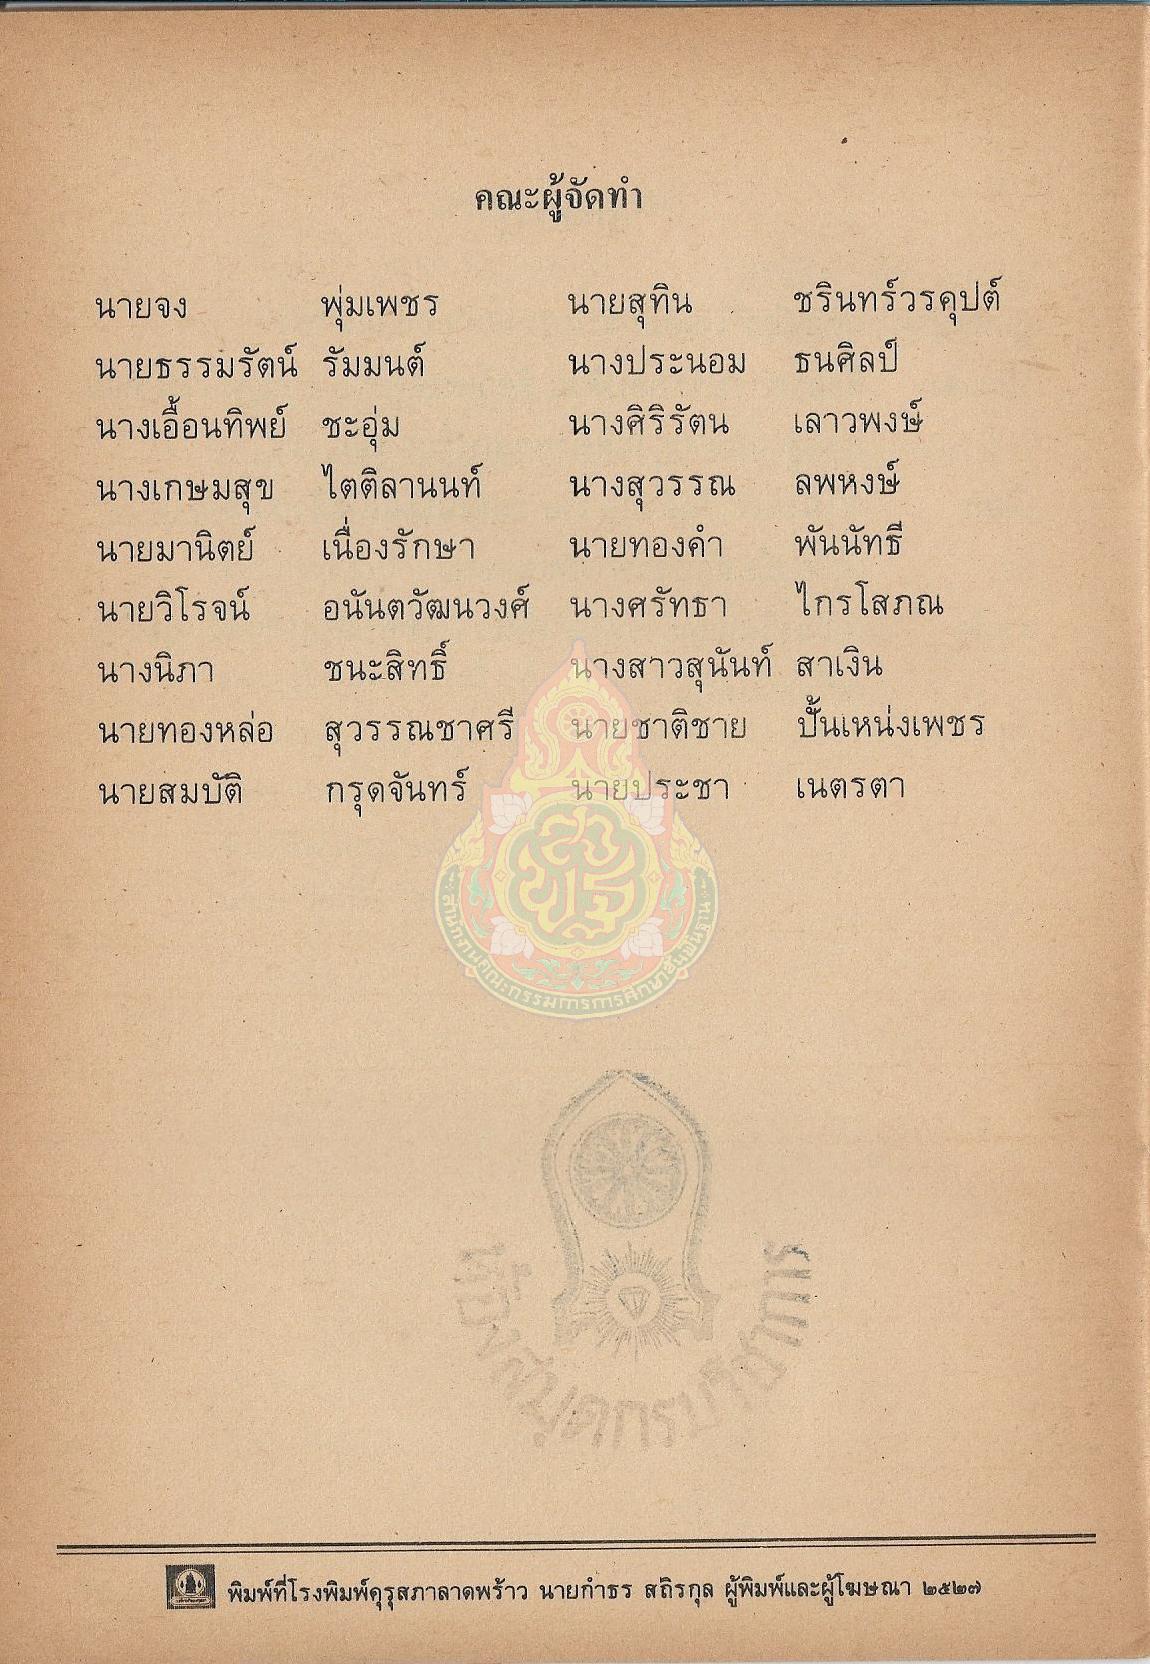 คณะผู้จัดทำ
นายจง พุ่มเพชร นายสุทิน ชรินทร์วรคุปต์
นายธรรมรัตน์ รัมมนต์ นางประนอม ธนศิลป์
นางเอื้อนทิพย์ ชะอุ่ม นางศิริรัตน เลาวพงษ์
นางเกษมสุข ไตติลานนท์ นางสุวรรณ ลพหงษ์
นายมานิตย์ เนื่องรักษา นายทองคำ พันนัทธี
นายวิโรจน์ อนันตวัฒนวงศ์ นางศรัทธา ไกรโสภณ
นางนิภา ชนะสิทธิ์ นางสาวสุนันท์ สาเงิน
นายทองหล่อ สุวรรณชาศรี นายชาติชาย ปั้นเหน่งเพชร
นายสมบัติ กรุดจันทร์ นายประชา เนตรตา
สำนักงานคณะกรรมการการศึกษาขั้นพื้นฐาน
ห้องสมุดกรมวิชาการ
พิมพ์ที่โรงพิมพ์คุรุสภาลาดพร้าว นายกำธร สถิรกุล ผู้พิมพ์และผู้โฆษณา ๒๕๒๗